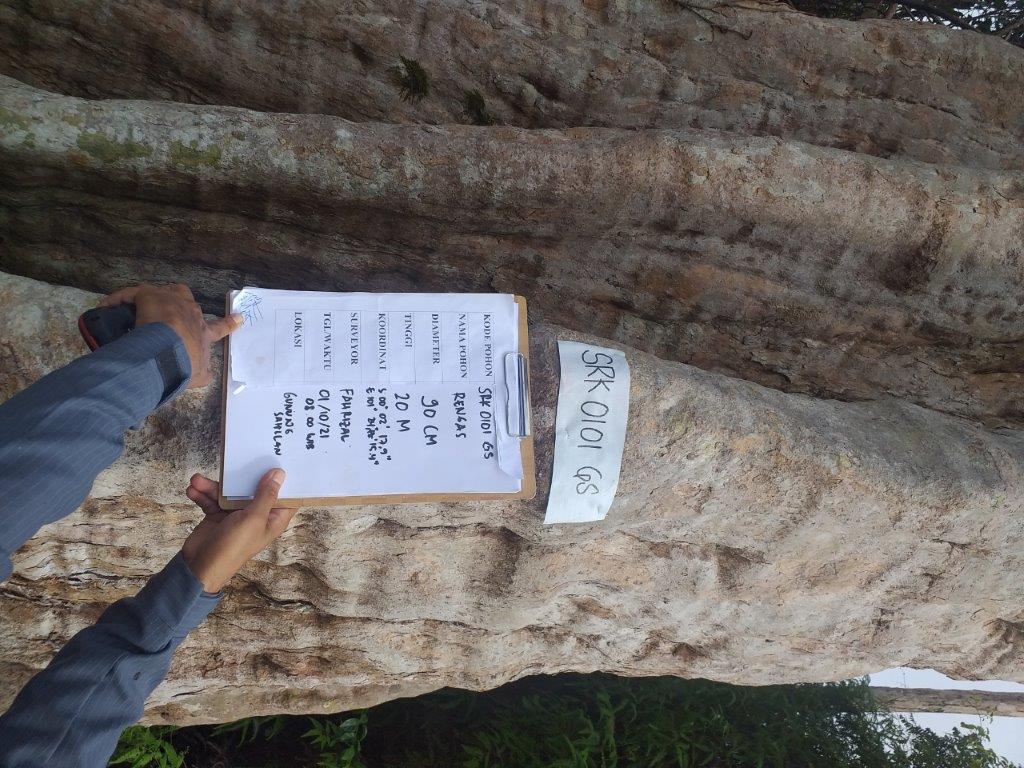 SRK 0101 GS
KODE POHON SRK 0101 GS
NAMA POHON RENGAS
DIAMETER 90 CM
TINGGI 20 M
KOORDINAT S 00° 02' 17,9"
E 101° 15,4"
SURVEYOR FAHRIZAL
TGL/WAKTU 01/10/21
08 00 WIB
LOKASI GUNUNG
SAHILAN